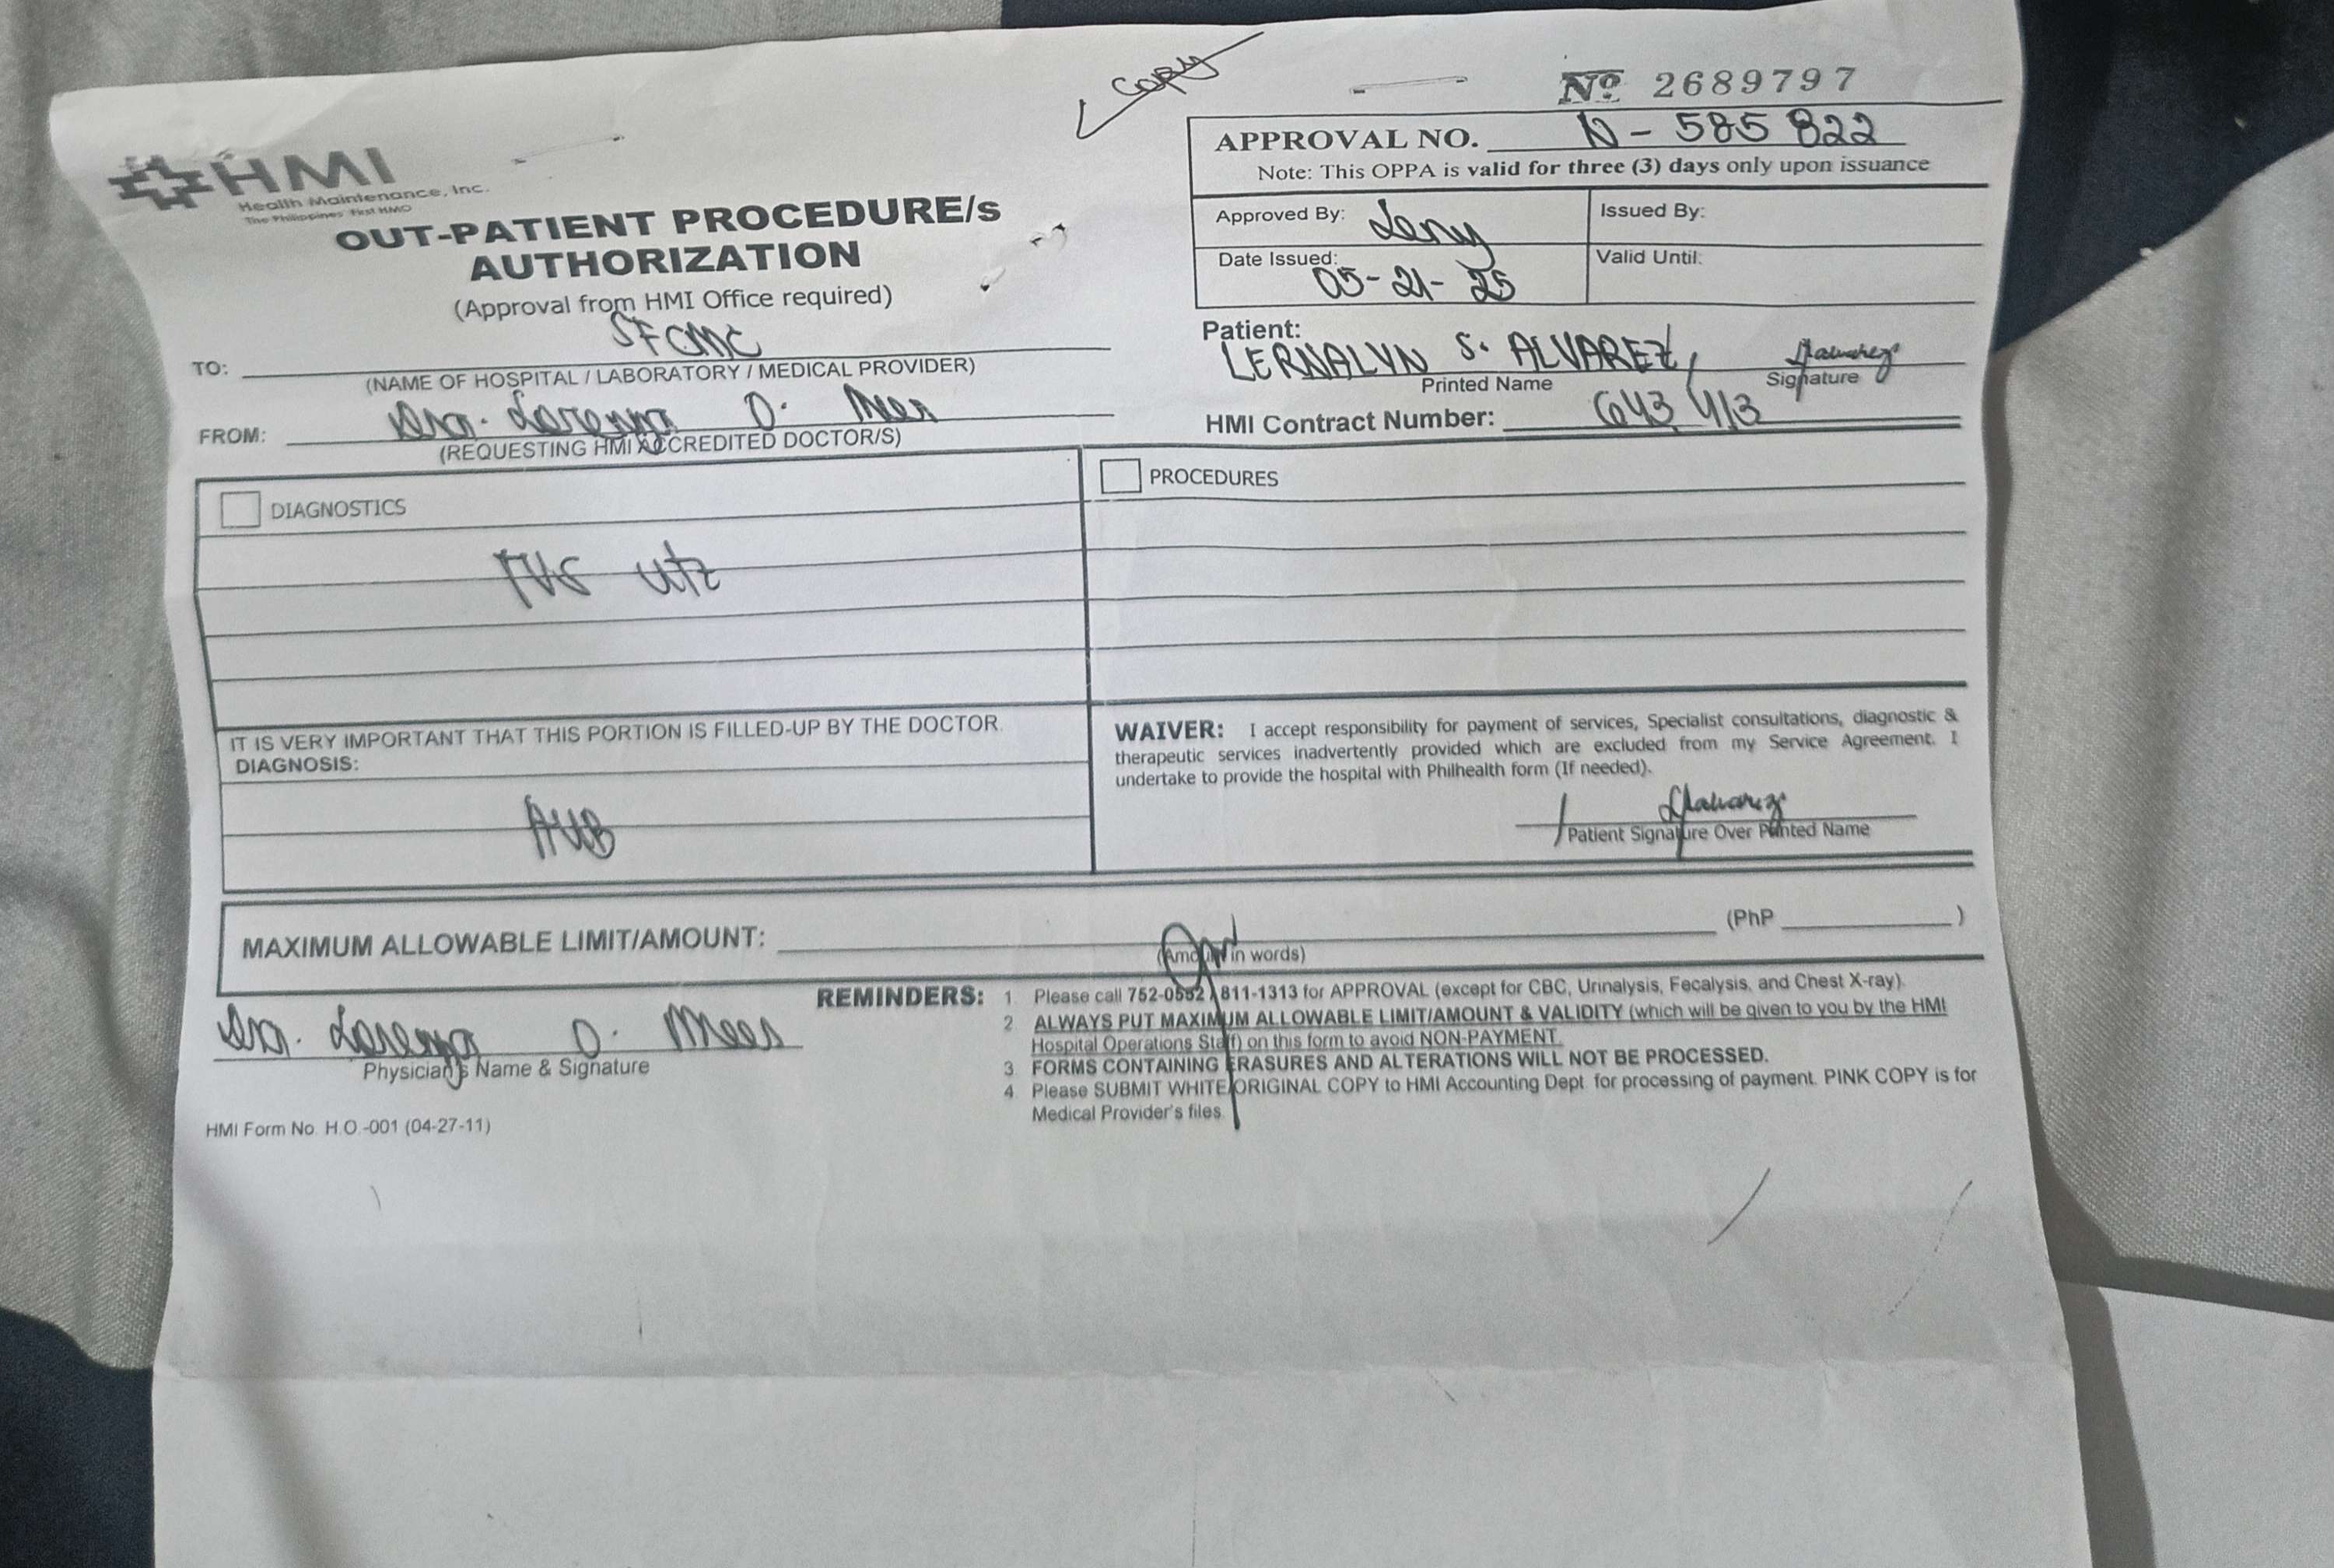 Copy
Nº 2689797
HMI
Health Maintenance, Inc.
The Philippines' First HMO
OUT-PATIENT PROCEDURE/s
AUTHORIZATION
(Approval from HMI Office required)
APPROVAL NO. N-585822
Note: This OPPA is valid for three (3) days only upon issuance
Approved By: Leny
Issued By:
Date Issued: 05-21-25
Valid Until:
TO: SFCMC
(NAME OF HOSPITAL / LABORATORY / MEDICAL PROVIDER)
FROM: Dra. Lorenza O. 
(REQUESTING HMI ACCREDITED DOCTOR/S)
Patient:
LERNALYN S. ALVAREZ
Printed Name
Signature
HMI Contract Number: 643413
DIAGNOSTICS
TVS utz
PROCEDURES
IT IS VERY IMPORTANT THAT THIS PORTION IS FILLED-UP BY THE DOCTOR.
DIAGNOSIS:
AUB
WAIVER: I accept responsibility for payment of services, Specialist consultations, diagnostic &
therapeutic services inadvertently provided which are excluded from my Service Agreement. I
undertake to provide the hospital with Philhealth form (If needed).
Patient Signature Over Printed Name
MAXIMUM ALLOWABLE LIMIT/AMOUNT:
(PhP )
(Amount in words)
Dra. Lorenza O.
Physician's Name & Signature
REMINDERS:
1 Please call 752-0552 / 811-1313 for APPROVAL (except for CBC, Urinalysis, Fecalysis, and Chest X-ray).
2 ALWAYS PUT MAXIMUM ALLOWABLE LIMIT/AMOUNT & VALIDITY (which will be given to you by the HMI
Hospital Operations Staff) on this form to avoid NON-PAYMENT.
3 FORMS CONTAINING ERASURES AND ALTERATIONS WILL NOT BE PROCESSED.
4 Please SUBMIT WHITE/ORIGINAL COPY to HMI Accounting Dept. for processing of payment. PINK COPY is for
Medical Provider's files.
HMI Form No. H.O.-001 (04-27-11)